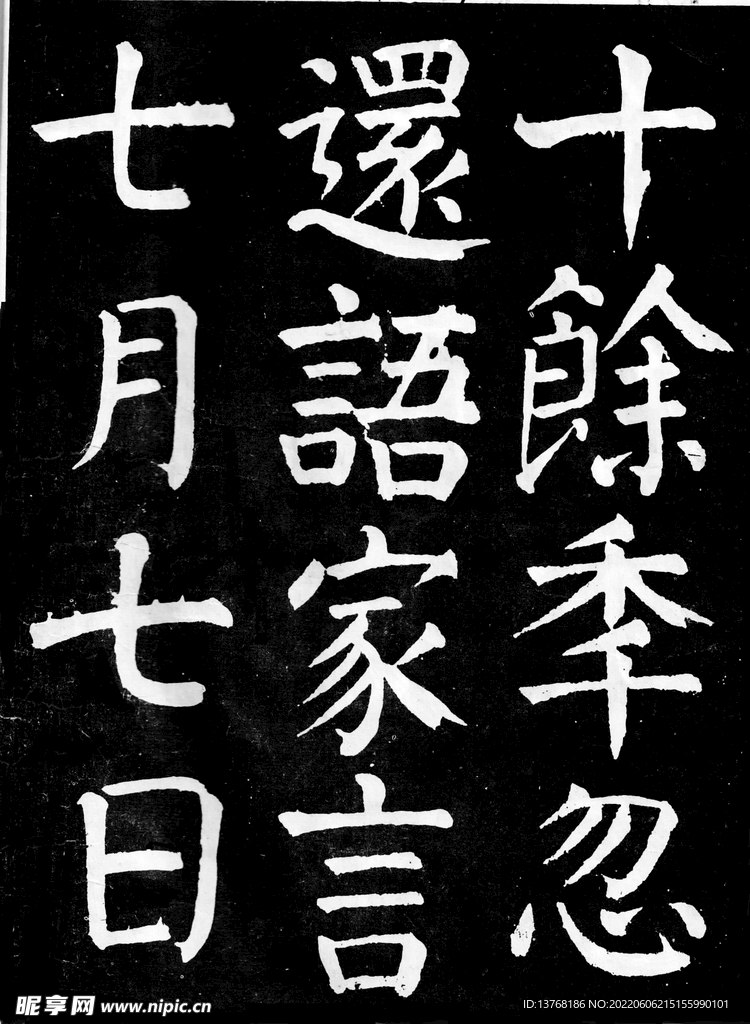 十餘秊忽
還語家言
七月七日
昵享网 www.nipic.cn
ID:13768186 NO:20220606215155990101